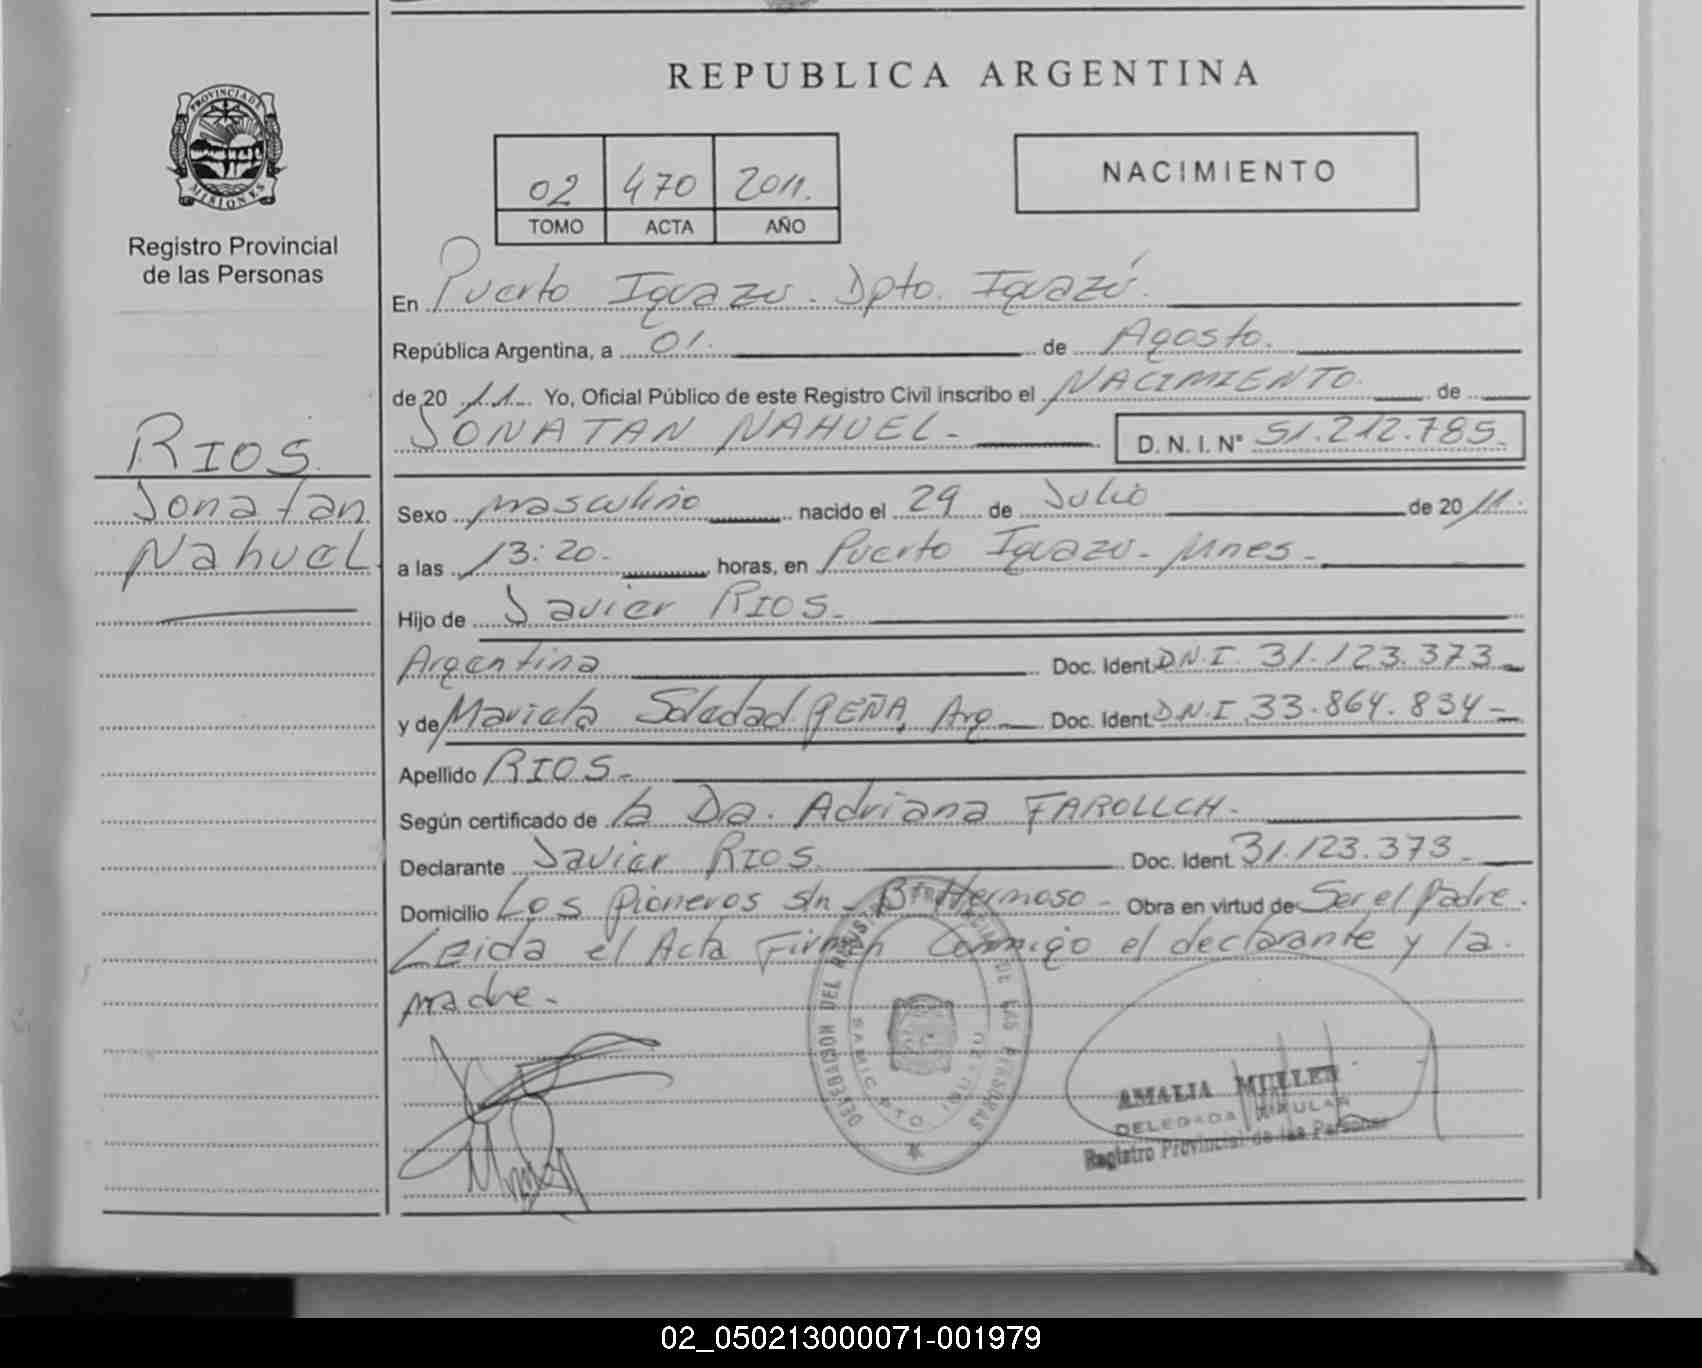 REPUBLICA ARGENTINA
PROVINCIA DE
MISIONES
Registro Provincial
de las Personas
02 470 2011.
TOMO ACTA AÑO
NACIMIENTO
RIOS
Jonatan
Nahuel
En Puerto Iguazu. Dpto. Iguazú.
República Argentina, a 01. de Agosto.
de 20 11. Yo, Oficial Público de este Registro Civil inscribo el NACIMIENTO. de
JONATAN NAHUEL- D. N. I. Nº 51.212.785.
Sexo masculino nacido el 29 de Julio de 20 11.
a las 13:20- horas, en Puerto Iguazu- Mnes-
Hijo de Javier RIOS-
Argentina Doc. Ident. D.N.I. 31.123.373
y de Mariela Soledad PEÑA, Arg- Doc. Ident. D.N.I 33.864.834-
Apellido RIOS-
Según certificado de la Da. Adriana FAROLLCH-
Declarante Javier RIOS. Doc. Ident. 31.123.373-
Domicilio Los Pioneros s/n- Bº Hermoso- Obra en virtud de Ser el Padre.
Leida el Acta Firman Conmigo el declarante y la
madre.
DELEGACION DEL REGISTRO PROVINCIAL DE LAS PERSONAS
AMALIA MULLER
DELEGADA TITULAR
Registro Provincial de las Personas
02_050213000071-001979